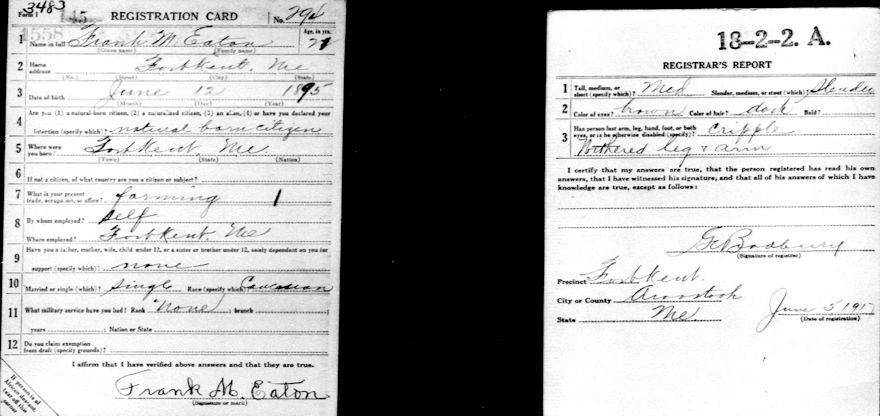 3483
Form 1 145 REGISTRATION CARD No. 294
1558 Age, in yrs.
1 Name in full Frank M. Eaton 21
(Given name) (Family name)
2 Home address Fort Kent, Me
(No.) (Street) (City) (State)
3 Date of birth June 12 1895
(Month) (Day) (Year)
4 Are you (1) a natural-born citizen, (2) a naturalized citizen, (3) an alien, (4) or have you declared your
intention (specify which)? natural born citizen
5 Where were you born? Fort Kent, Me.
(Town) (State) (Nation)
6 If not a citizen, of what country are you a citizen or subject?
7 What is your present trade, occupation, or office? farming 1
8 By whom employed? Self
Where employed? Fort Kent, Me
9 Have you a father, mother, wife, child under 12, or a sister or brother under 12, solely dependent on you for
support (specify which)? none
10 Married or single (which)? Single Race (specify which)? Caucasian
11 What military service have you had? Rank None ; branch
years ; Nation or State
12 Do you claim exemption from draft (specify grounds)?
I affirm that I have verified above answers and that they are true.
Frank M. Eaton
(Signature or mark)
If person is of
African descent,
tear off this
corner
18-2-2. A.
REGISTRAR'S REPORT
1 Tall, medium, or short (specify which)? Med Slender, medium, or stout (which)? Slender
2 Color of eyes? brown Color of hair? dark Bald?
3 Has person lost arm, leg, hand, foot, or both eyes, or is he otherwise disabled (specify)? Cripple
Withered leg & arm
I certify that my answers are true, that the person registered has read his own
answers, that I have witnessed his signature, and that all of his answers of which I have
knowledge are true, except as follows:
Bradbury
(Signature of registrar)
Precinct Fort Kent.
City or County Aroostook
State Me. June 5 1917
(Date of registration)